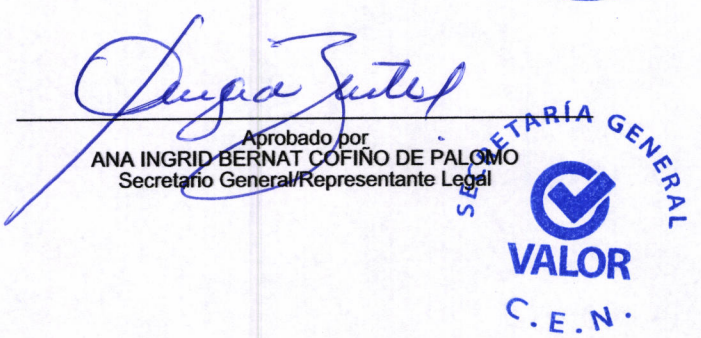 Aprobado por
ANA INGRID BERNAT COFIÑO DE PALOMO
Secretario General/Representante Legal
SECRETARÍA GENERAL
VALOR
C.E.N.